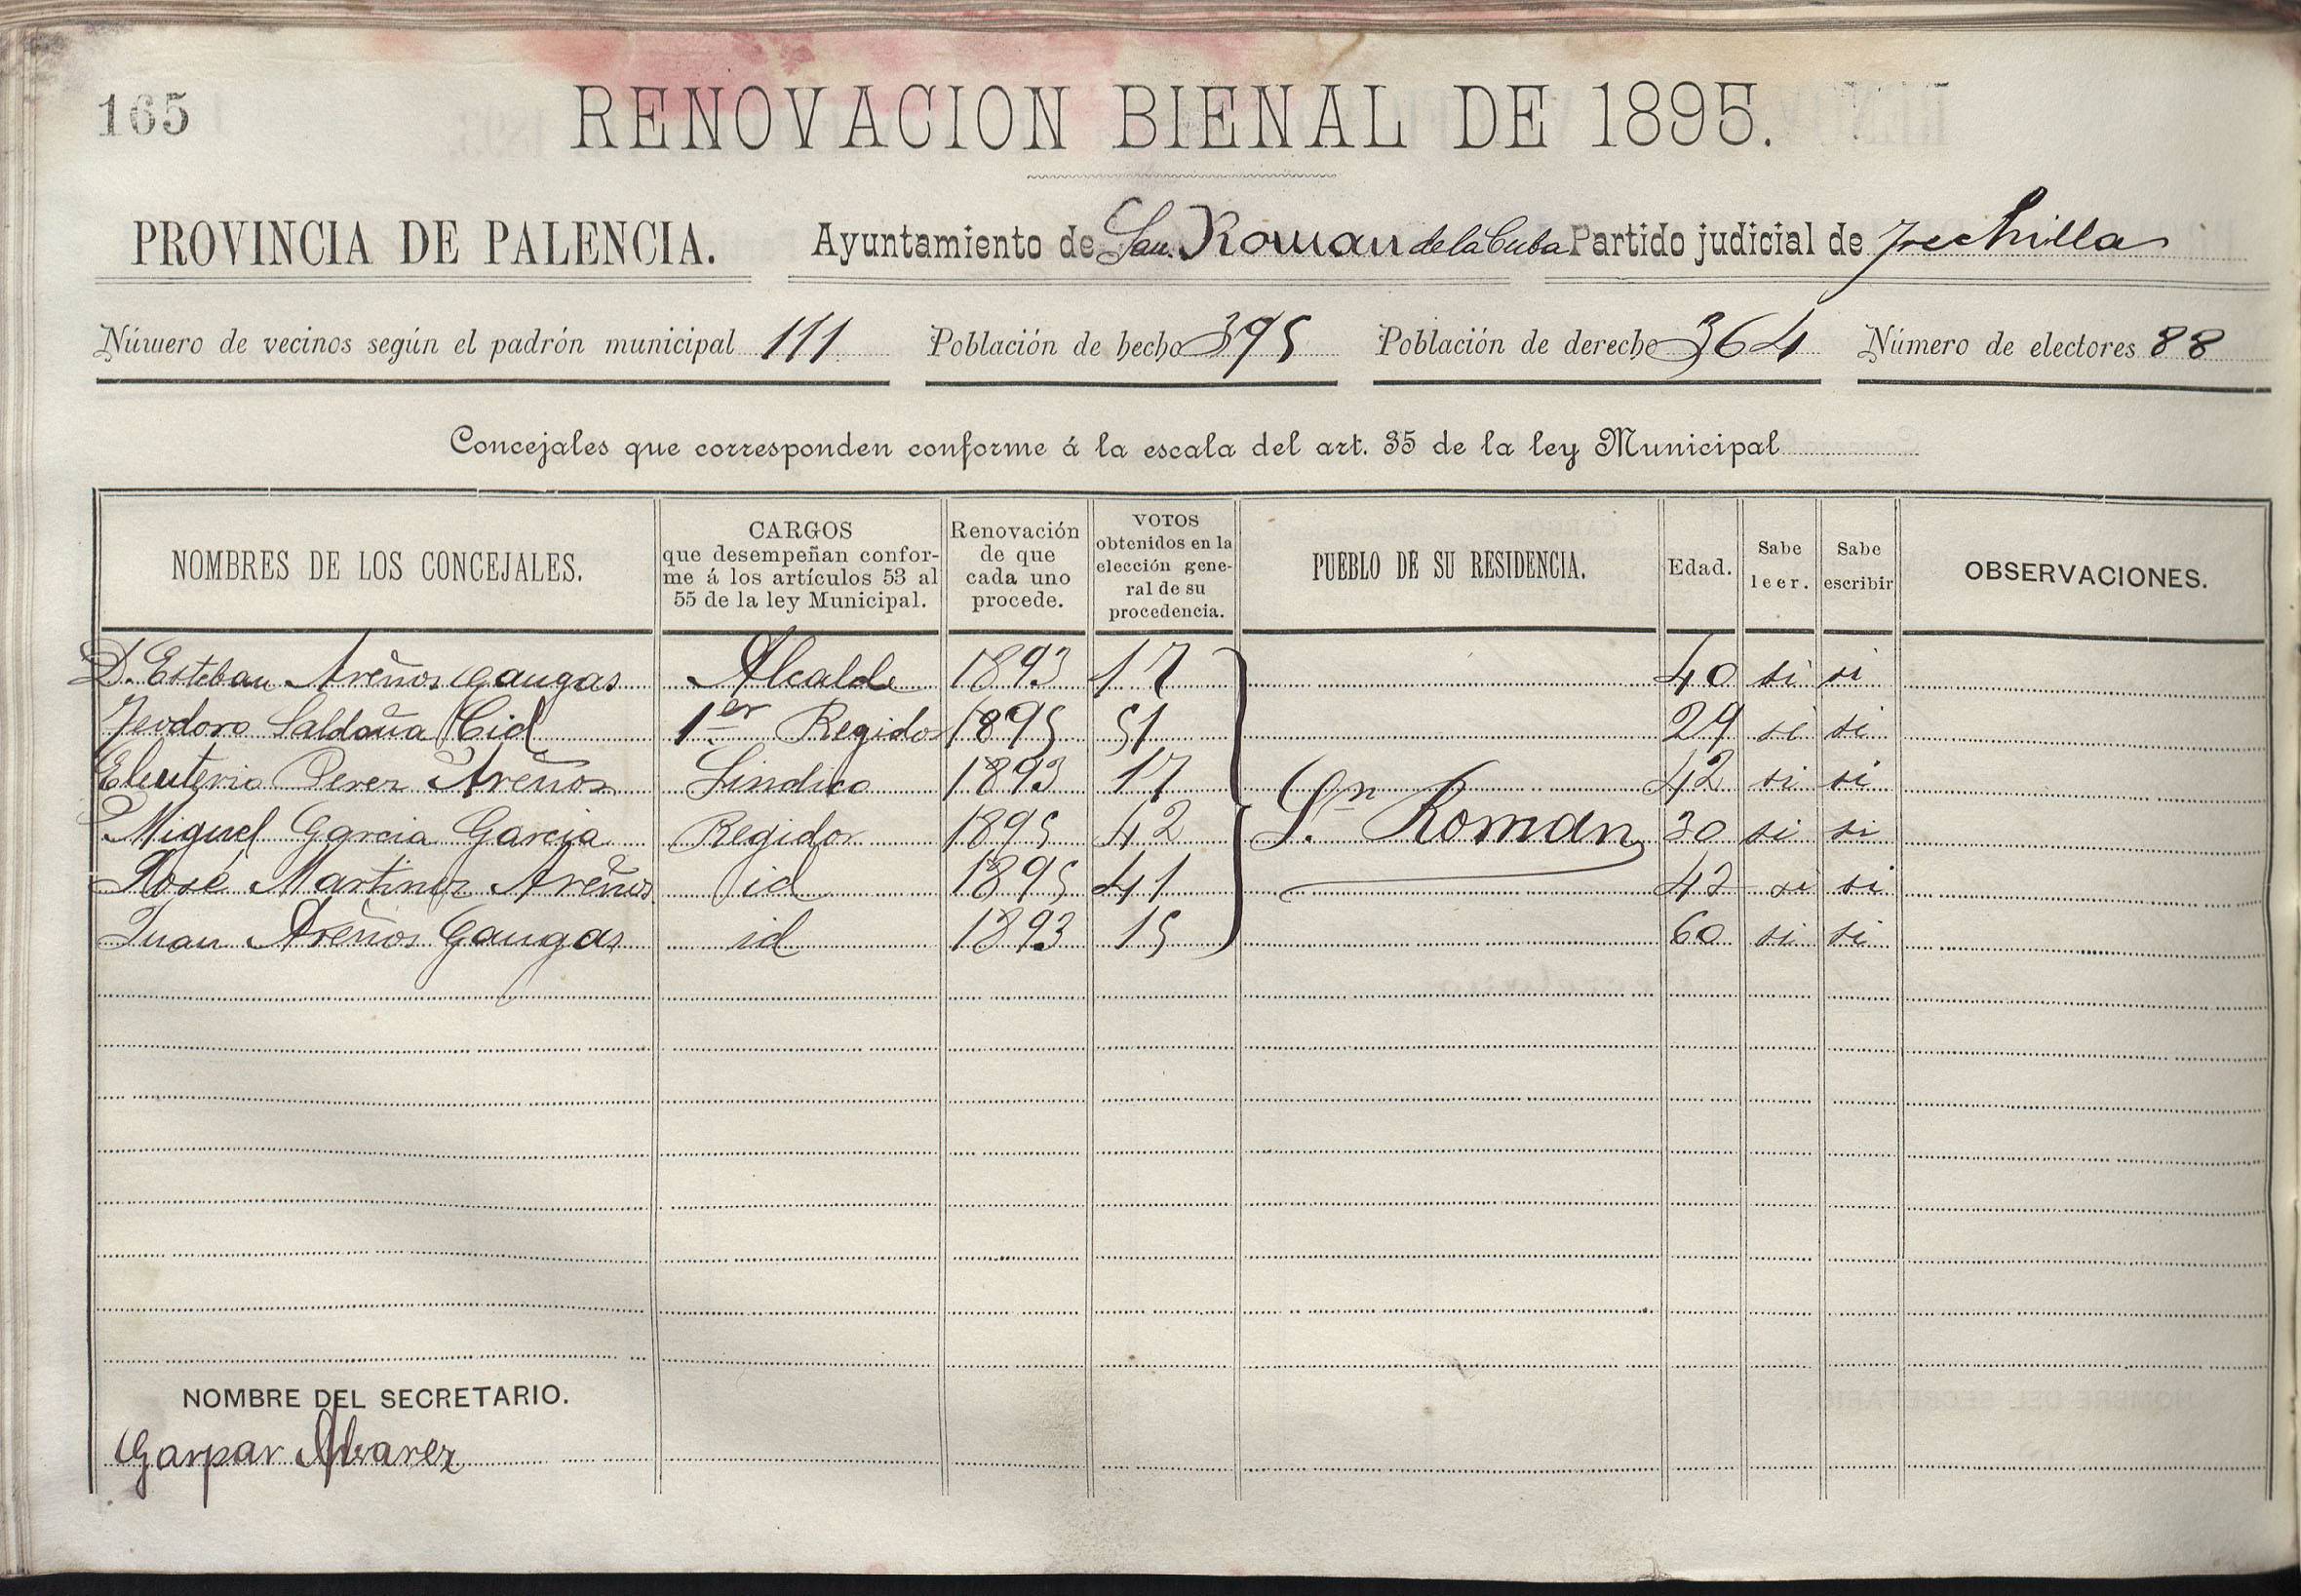 165
RENOVACION BIENAL DE 1895.
PROVINCIA DE PALENCIA. Ayuntamiento de San Roman de la Cuba Partido judicial de Frechilla
Número de vecinos según el padrón municipal 111 Población de hecho 395 Población de derecho 364 Número de electores 88
Concejales que corresponden conforme á la escala del art. 35 de la ley Municipal
NOMBRES DE LOS CONCEJALES.
CARGOS
que desempeñan confor-
me á los artículos 53 al
55 de la ley Municipal.
Renovación
de que
cada uno
procede.
VOTOS
obtenidos en la
elección gene-
ral de su
procedencia.
PUEBLO DE SU RESIDENCIA.
Edad.
Sabe
leer.
Sabe
escribir
OBSERVACIONES.
D. Esteban Areños Gangas Alcalde 1893 17 40 si si
Teodoro Saldaña Cid 1.er Regidor 1895 51 29 si si
Eleuterio Perez Areños Sindico 1893 17 42 si si
Miguel Garcia Garcia Regidor 1895 42 S.n Roman 30 si si
José Martinez Areños id 1895 41 42 si si
Juan Areños Gangas id 1893 15 60 si si
NOMBRE DEL SECRETARIO.
Gaspar Alvarez